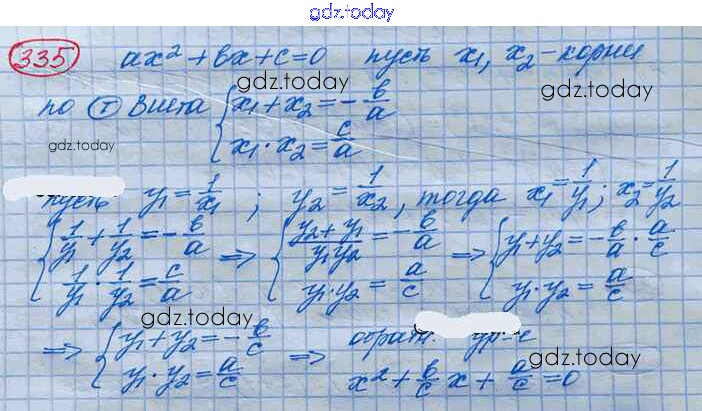 gdz.today
335 ax² + bx + c = 0 пусть x₁, x₂ – корни
gdz.today gdz.today
по Т Виета { x₁ + x₂ = -b/a
x₁ · x₂ = c/a
gdz.today
пусть y₁ = 1/x₁ ; y₂ = 1/x₂, тогда x₁ = 1/y₁; x₂ = 1/y₂
{ 1/y₁ + 1/y₂ = -b/a ⇒ { (y₂ + y₁)/(y₁y₂) = -b/a ⇒ { y₁ + y₂ = -b/a · a/c
1/y₁ · 1/y₂ = c/a y₁ · y₂ = a/c y₁ · y₂ = a/c
gdz.today
⇒ { y₁ + y₂ = -b/c ⇒ обратн. ур-е
gdz.today
y₁ · y₂ = a/c x² + b/c x + a/c = 0